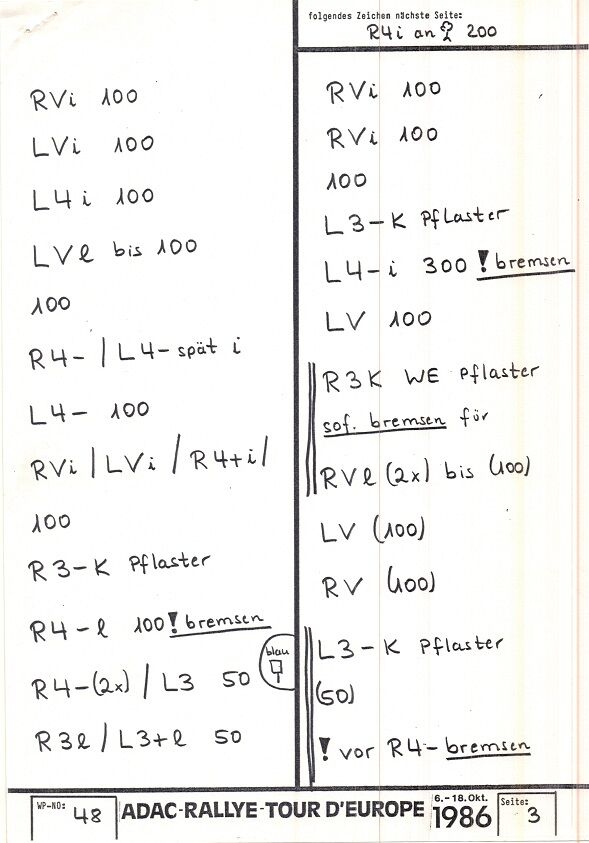 folgendes Zeichen nächste Seite:
R4i an 200
RVi 100
LVi 100
L4i 100
LVl bis 100
100
R4- / L4- spät i
L4- 100
RVi / LVi / R4+i /
100
R3-K Pflaster
R4-l 100 ! bremsen
blau
R4-(2x) / L3 50
R3l / L3+l 50
RVi 100
RVi 100
100
L3-K Pflaster
L4-i 300 ! bremsen
LV 100
R3K WE Pflaster
sof. bremsen für
RVl (2x) bis (100)
LV (100)
RV (100)
L3-K Pflaster
(50)
! vor R4- bremsen
WP-NO: 48
ADAC-RALLYE-TOUR D'EUROPE
6.-18. Okt.
1986
Seite: 3